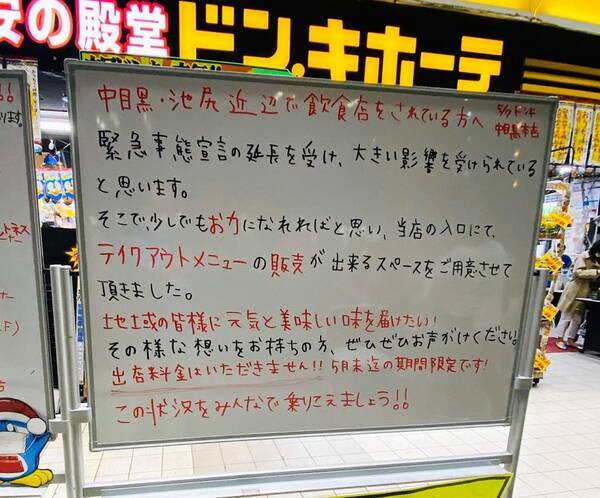 安の殿堂 ドン.キホーテ
中目黒・池尻近辺で飲食店をされている方へ
中目黒本店
緊急事態宣言の延長を受け、大きい影響を受けられている
と思います。
そこで、少しでもお力になれればと思い、当店の入口にて、
テイクアウトメニューの販売が出来るスペースをご用意させて
頂きました。
地域の皆様に元気と美味しい味を届けたい!
その様な想いをお持ちの方、ぜひぜひお声がけください。
出店料金はいただきません!! 5月末迄の期間限定です!
この状況をみんなで乗りこえましょう!!